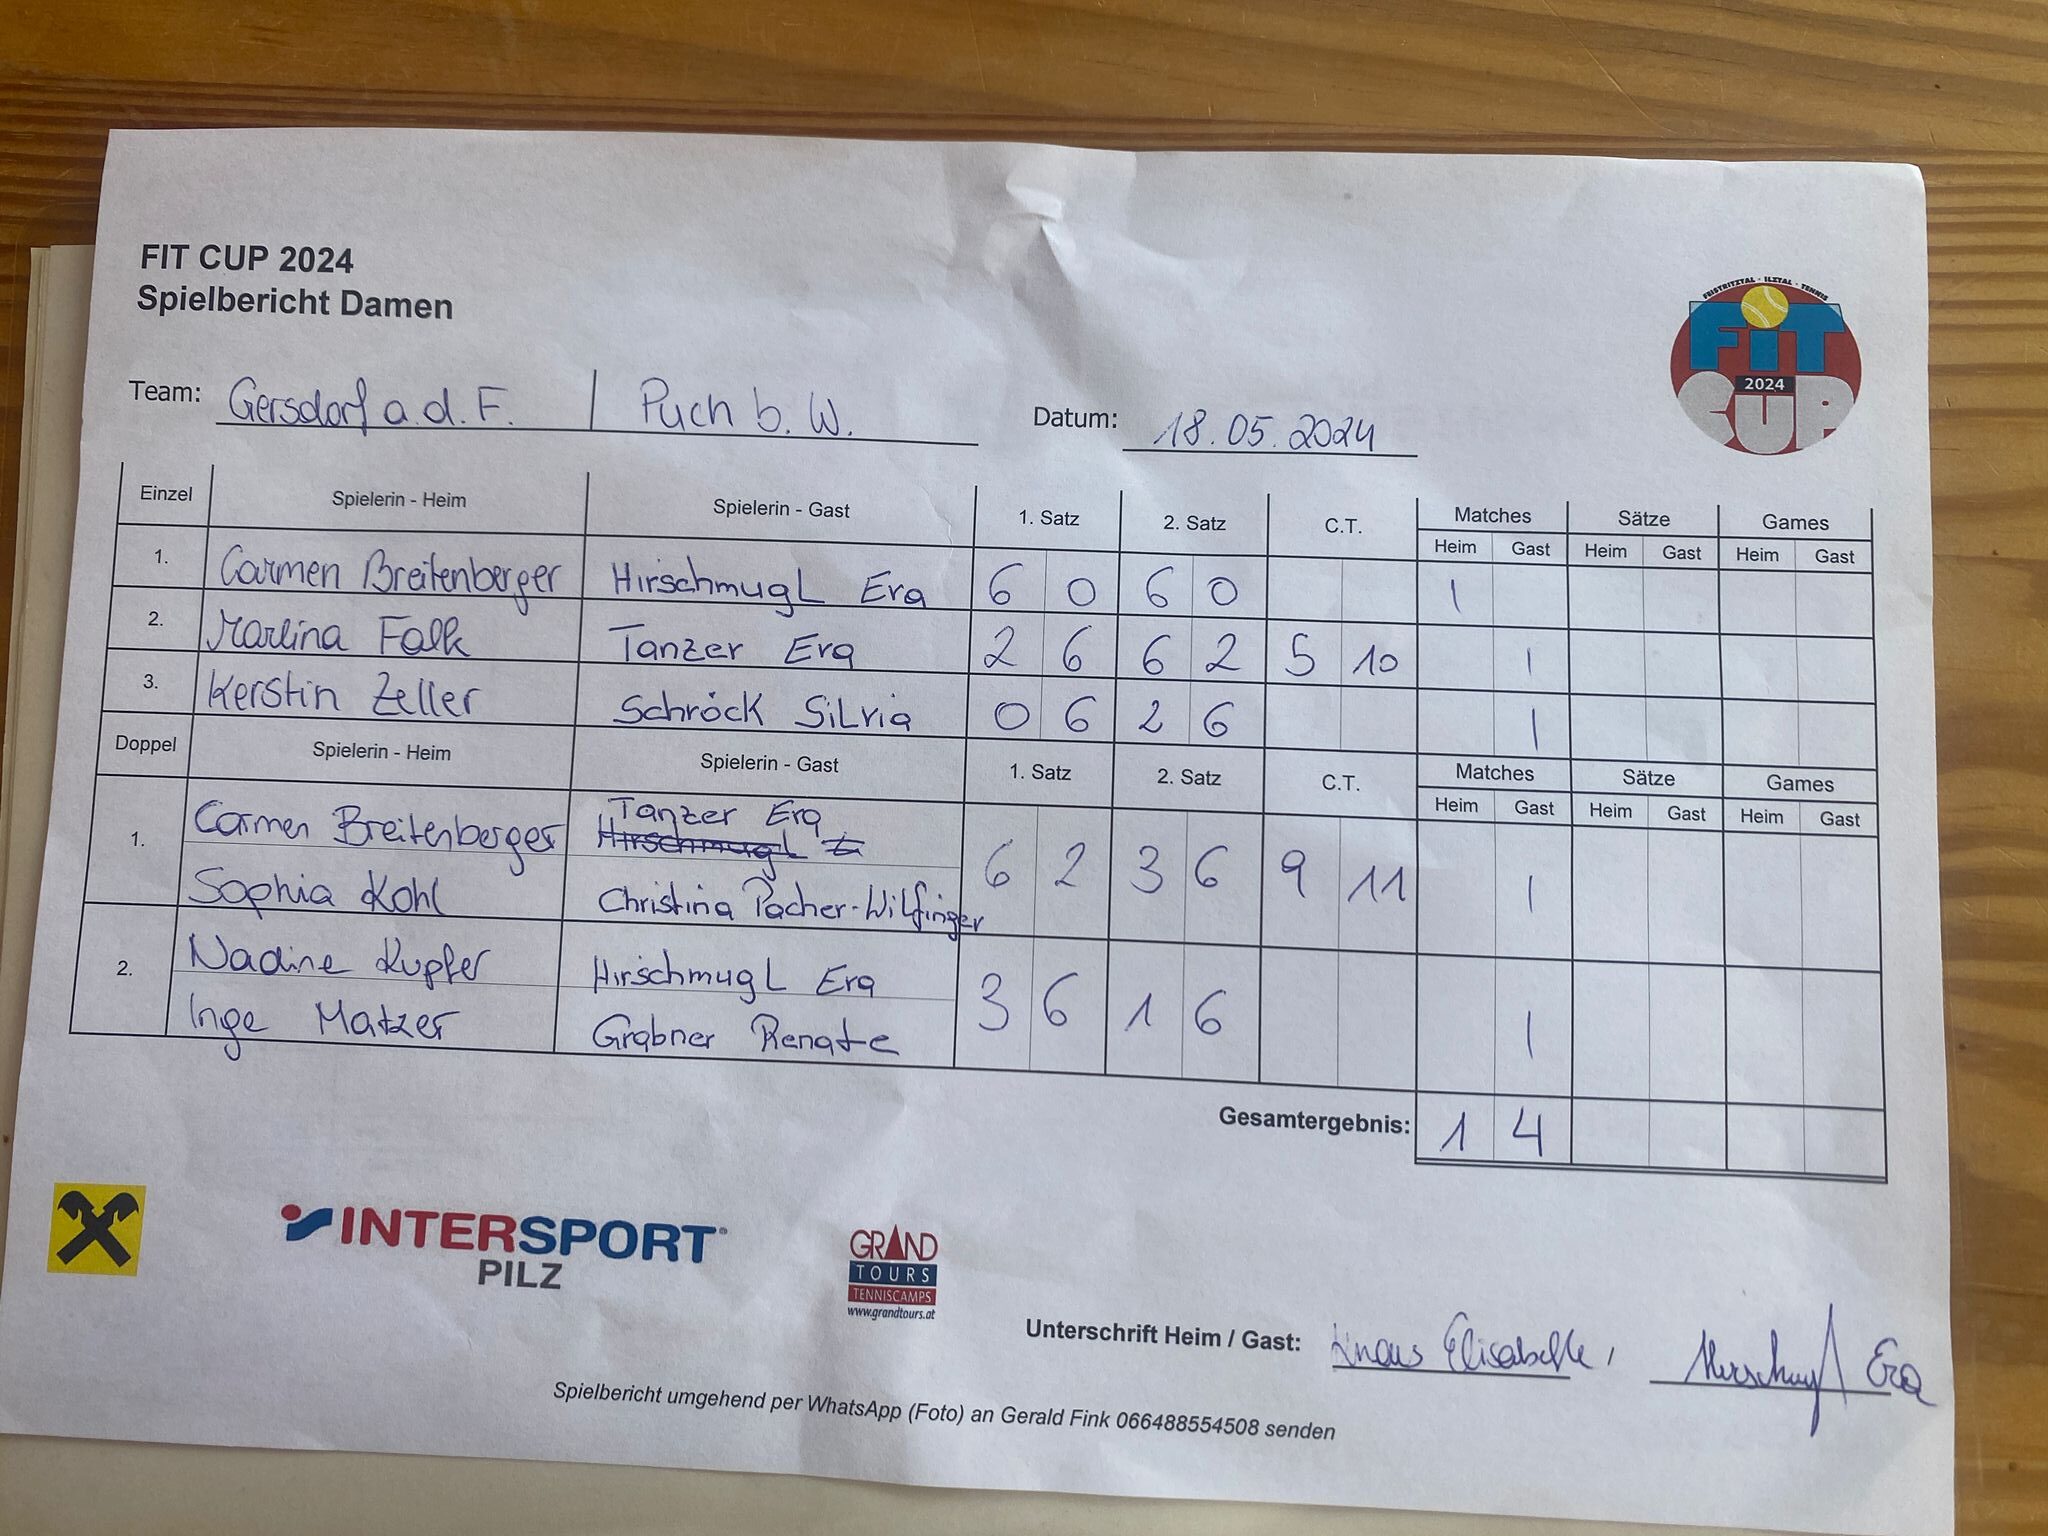 FIT CUP 2024
Spielbericht Damen
FEISTRITZTAL - ILZTAL - TENNIS
FiT
2024
CUP
Team: Gersdorf a.d. F. | Puch b. W. Datum: 18.05.2024
Einzel Spielerin - Heim Spielerin - Gast 1. Satz 2. Satz C.T. Matches Sätze Games
Heim Gast Heim Gast Heim Gast
1. Carmen Breitenberger Hirschmugl Eva 6 0 6 0 1
2. Marlina Falk Tanzer Eva 2 6 6 2 5 10 1
3. Kerstin Zeller Schröck Silvia 0 6 2 6 1
Doppel Spielerin - Heim Spielerin - Gast 1. Satz 2. Satz C.T. Matches Sätze Games
Heim Gast Heim Gast Heim Gast
1. Carmen Breitenberger Tanzer Eva 6 2 3 6 9 11 1
Hirschmugl E
Sophia Kohl Christina Pacher-Wilfinger
2. Nadine Kupfer Hirschmugl Eva 3 6 1 6 1
Inge Matzer Grabner Renate
Gesamtergebnis: 1 4
INTERSPORT
PILZ
GRAND
TOURS
TENNISCAMPS
www.grandtours.at
Unterschrift Heim / Gast: Knaus Elisabeth, Hirschmugl Eva
Spielbericht umgehend per WhatsApp (Foto) an Gerald Fink 066488554508 senden